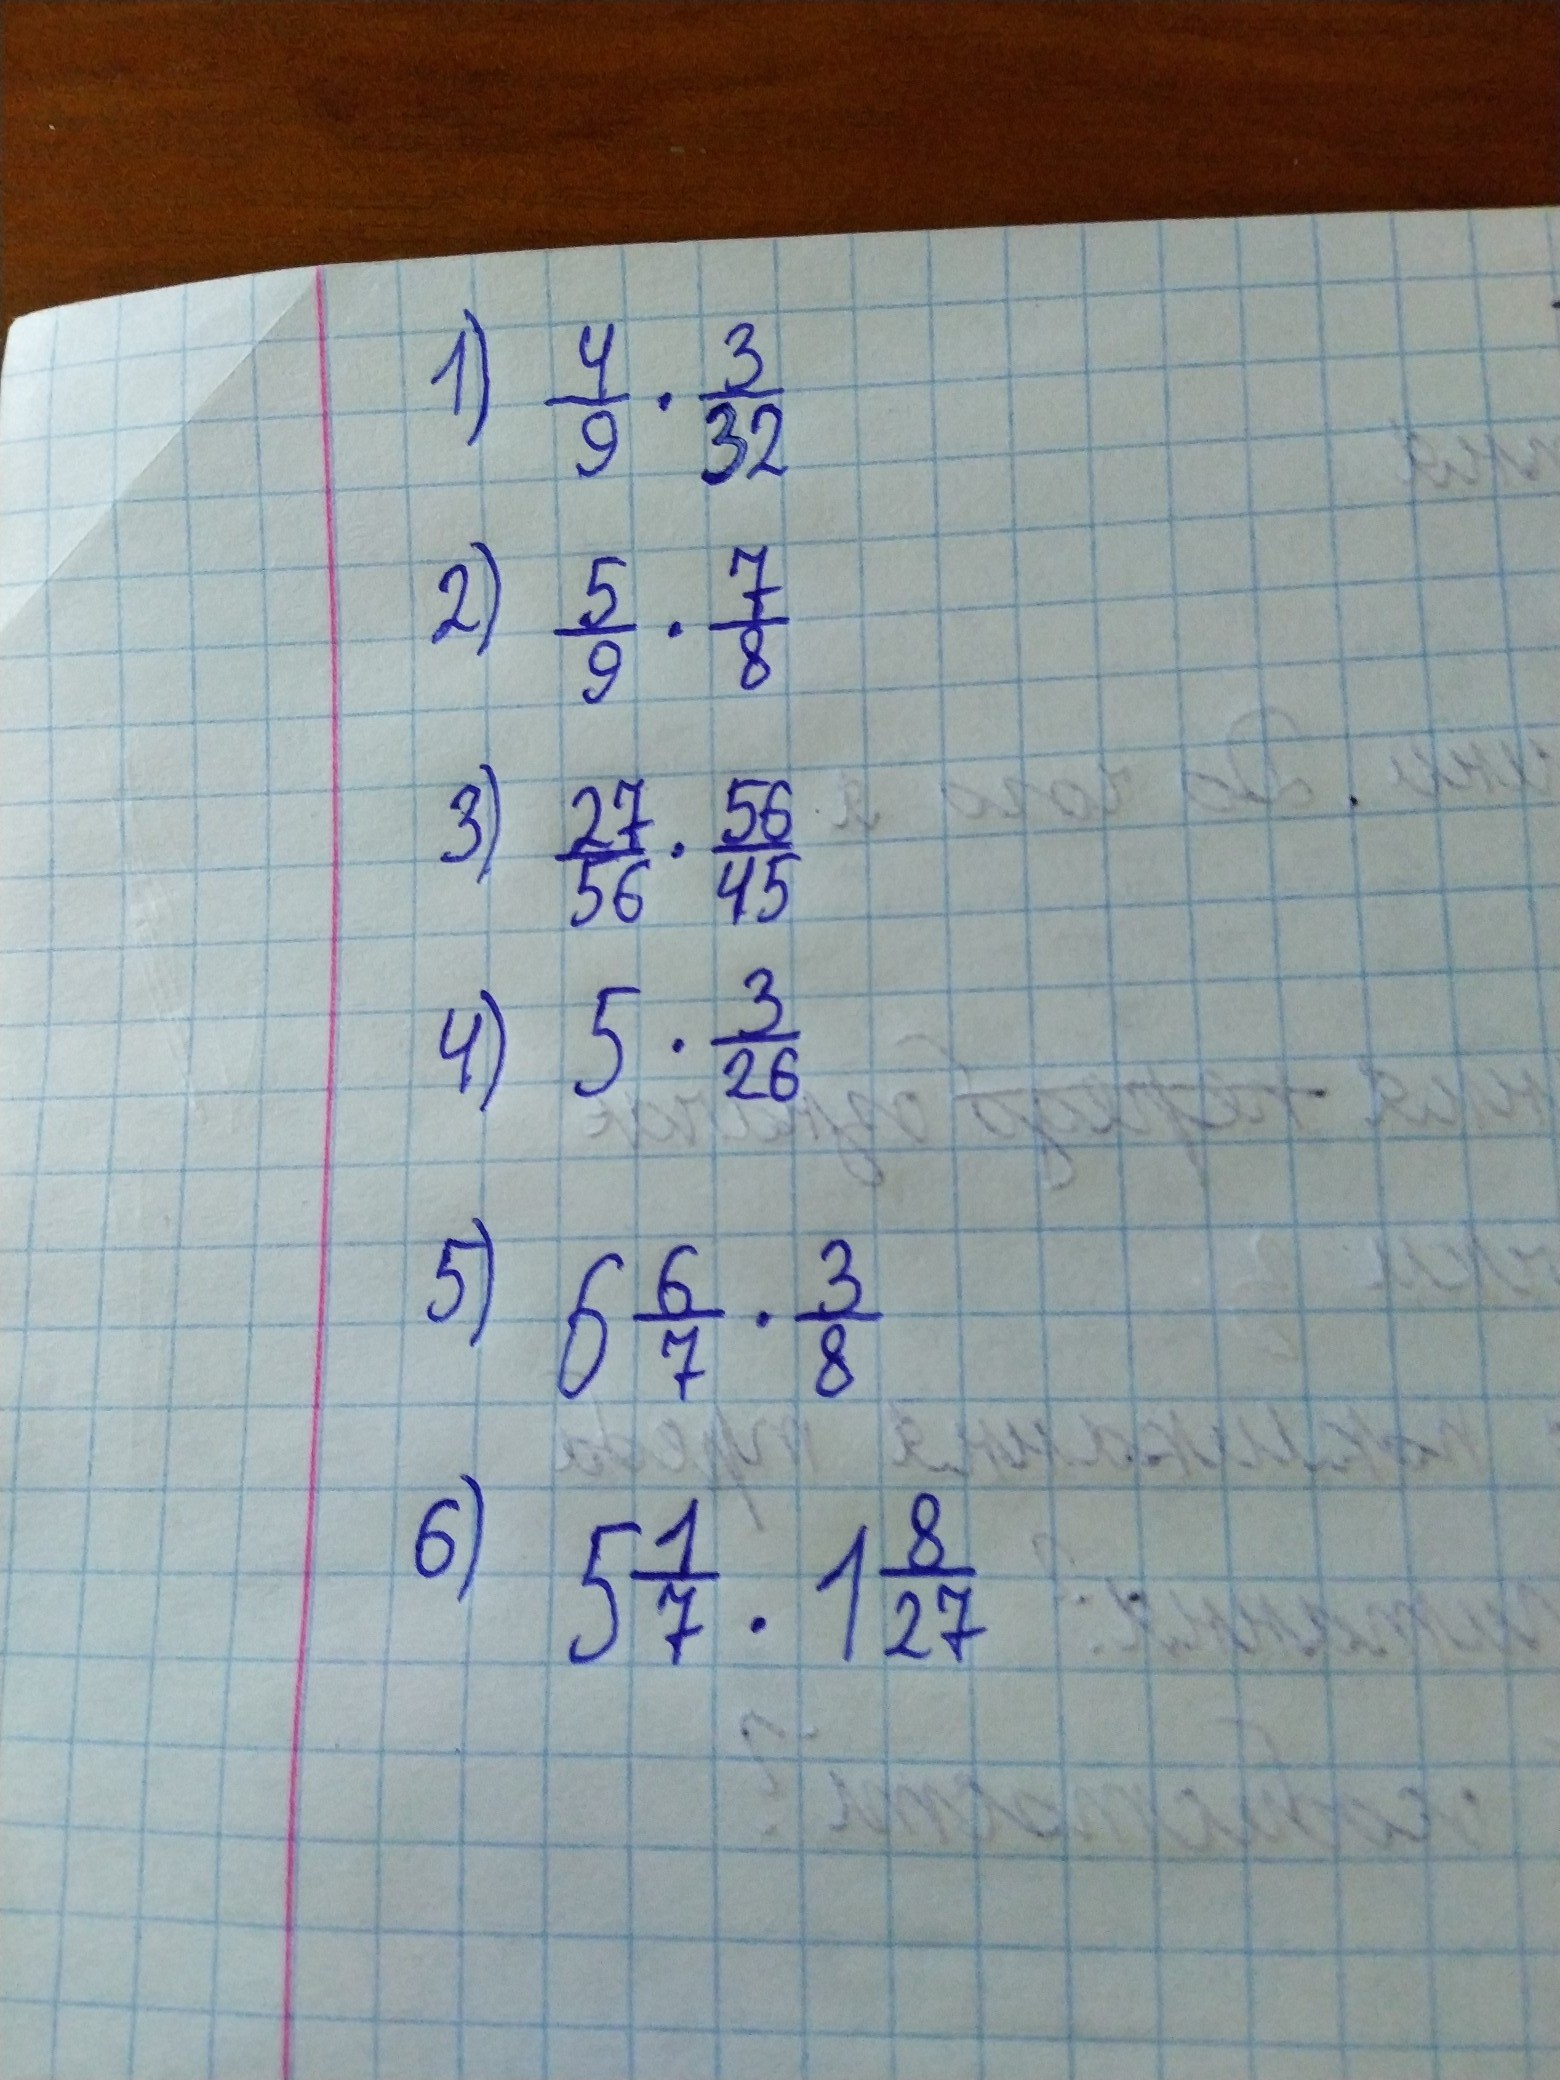 1) 4/9 · 3/32
2) 5/9 · 7/8
3) 27/56 · 56/45
4) 5 · 3/26
5) 6 6/7 · 3/8
6) 5 1/7 · 1 8/27